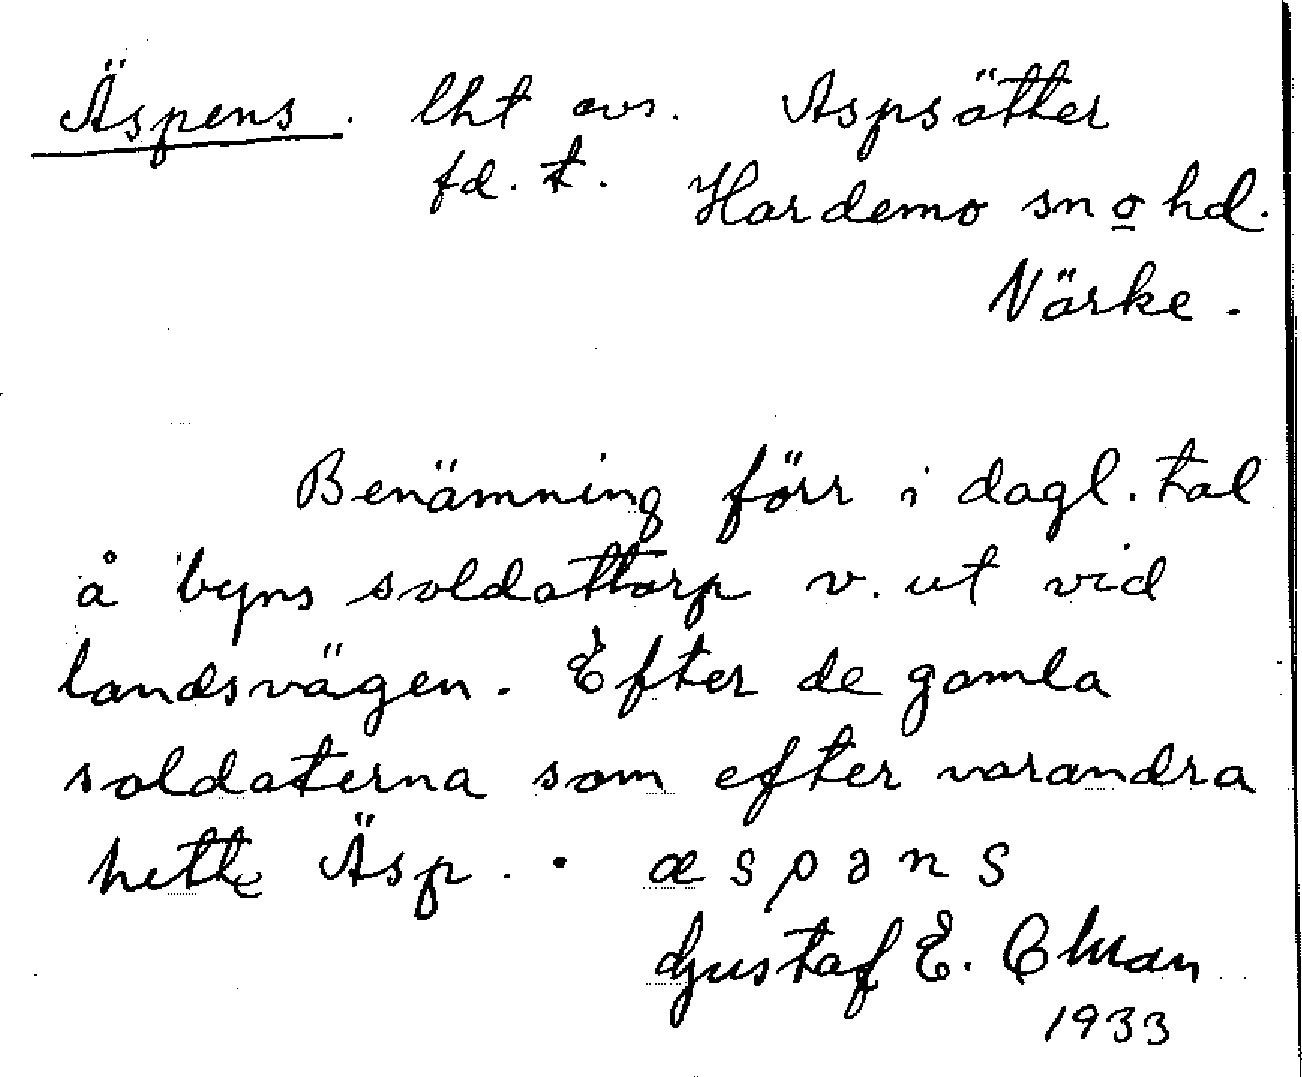 Äspens. lht avs. Aspsätter
fd. t. Hardemo sn o hd.
Närke.
Benämning förr i dagl. tal
å byns soldattorp v. ut vid
landsvägen. Efter de gamla
soldaterna som efter varandra
hette Äsp. · æspəns
Gustaf E.
1933